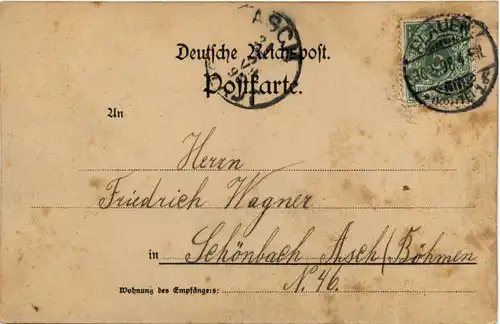 ASCH
PLAUEN
Deutsche Reichspost.
Postkarte.
An
Herrn
Friedrich Wagner
in Schönbach Asch/Böhmen
N. 46.
Wohnung des Empfängers: